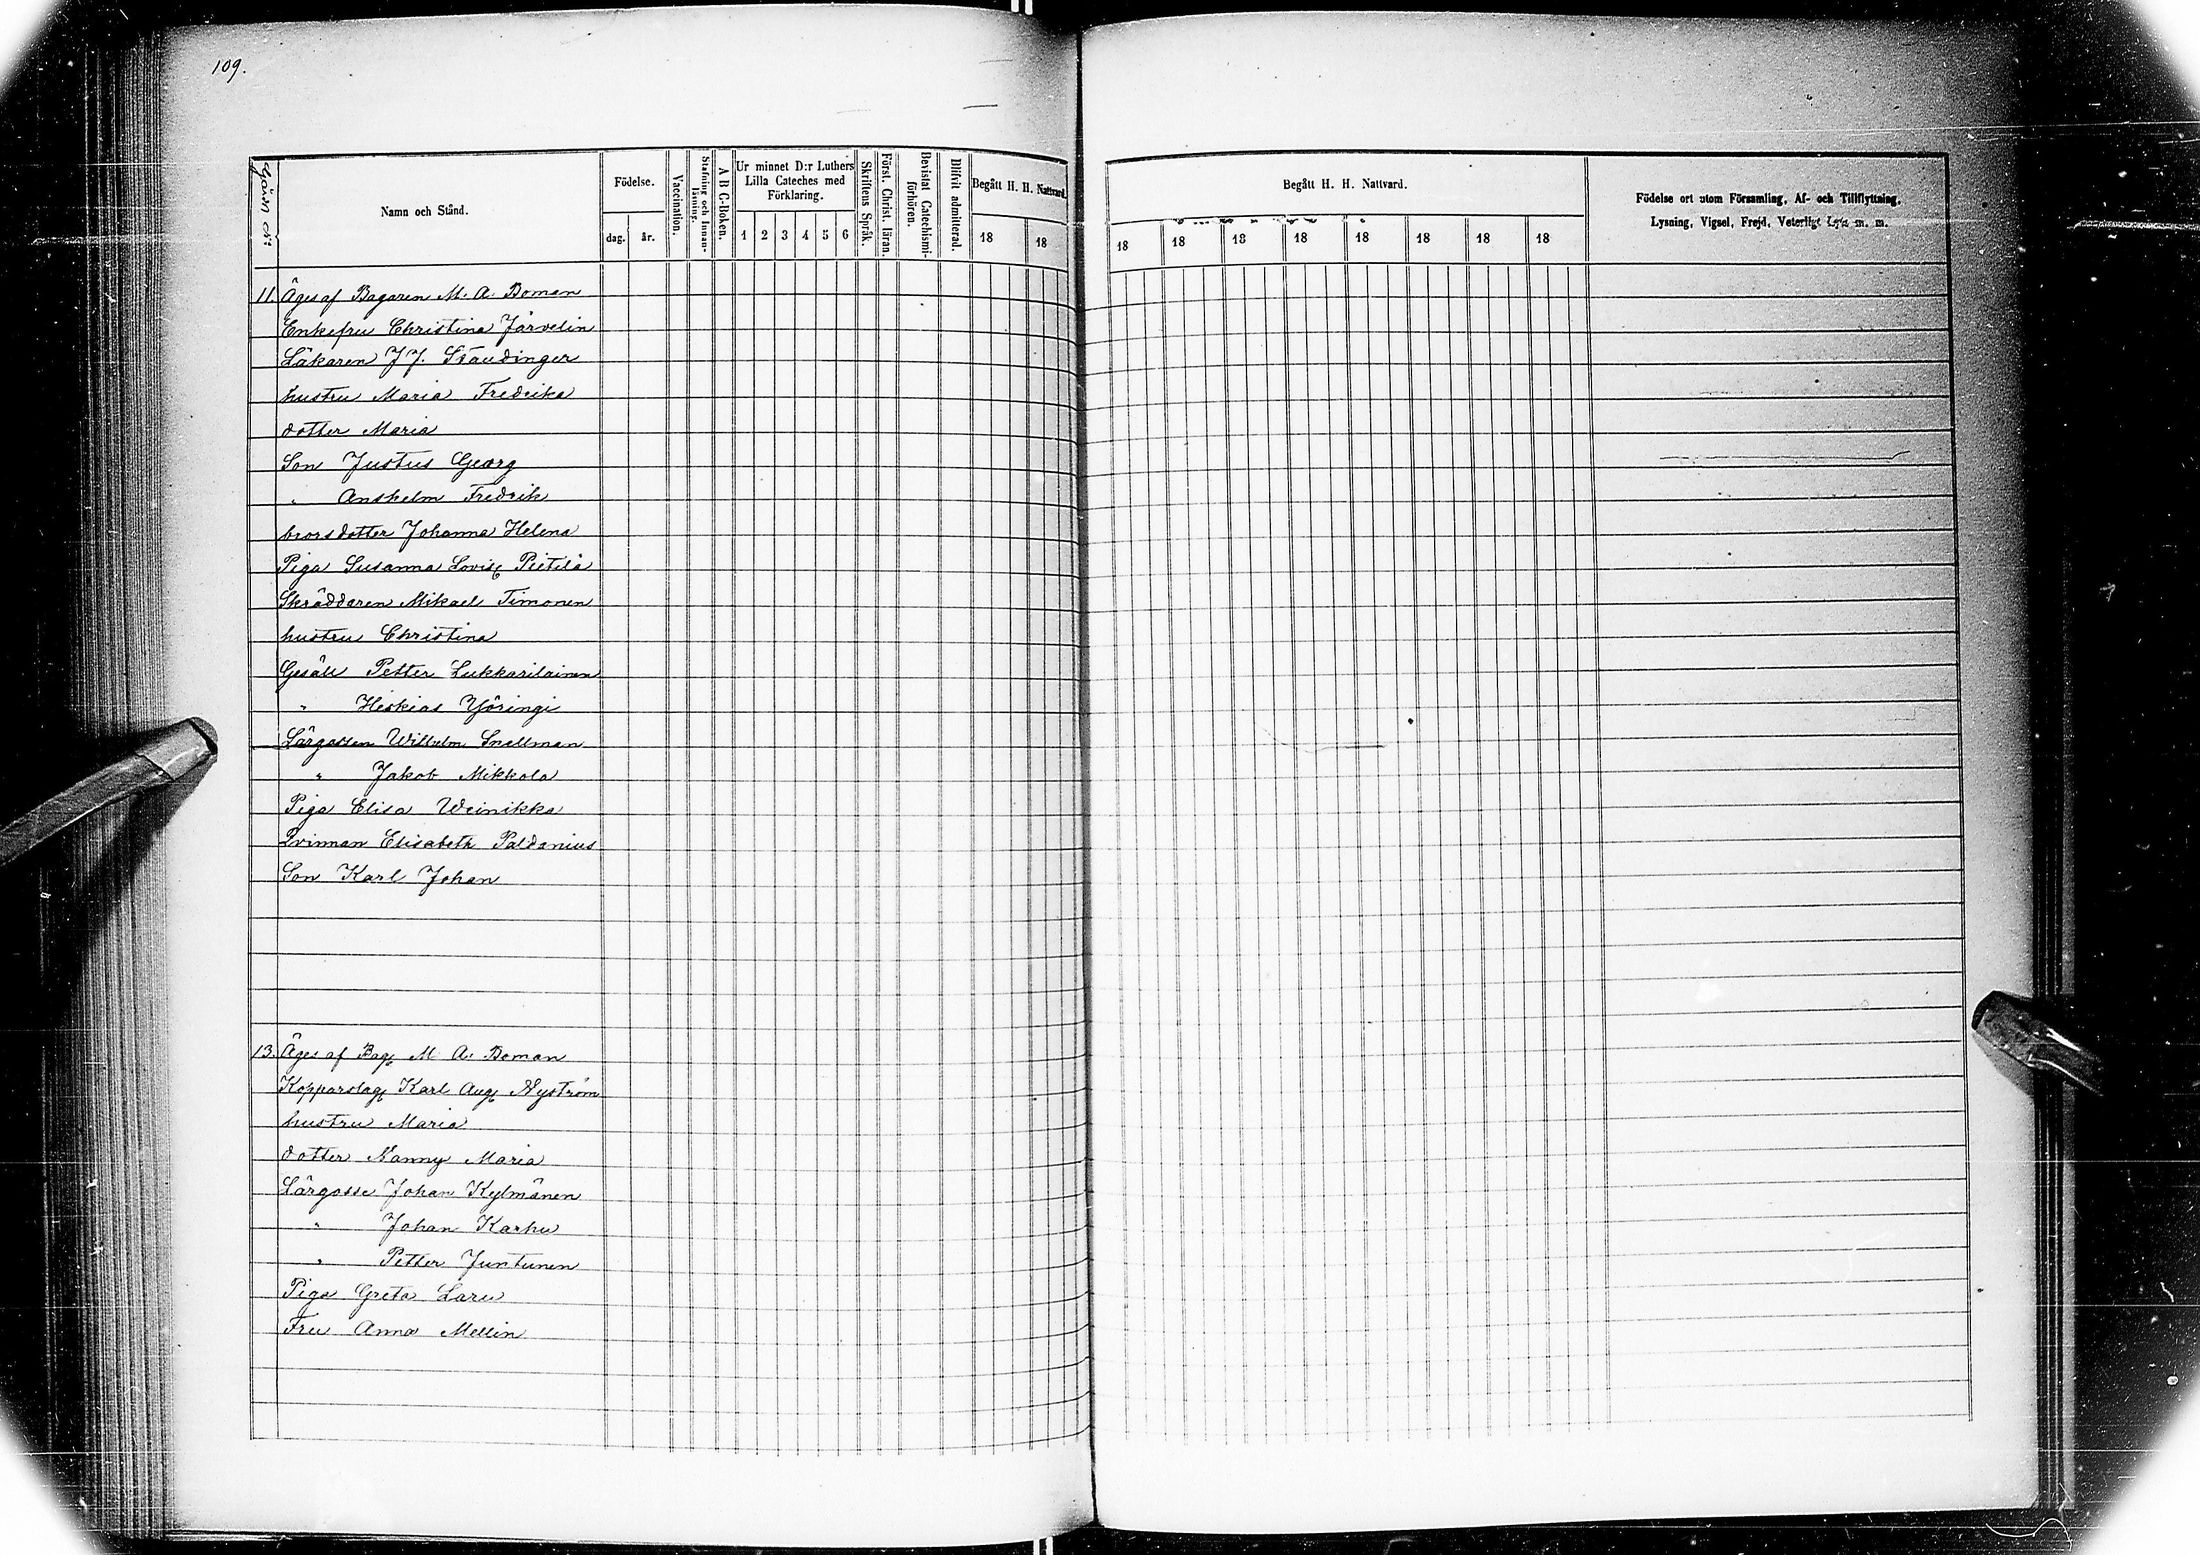 109.
Gård №:
Namn och Stånd.
Födelse.
dag. år.
Vaccination.
Stafning och Innanläsning.
A B C-Boken.
Ur minnet D:r Luthers Lilla Cateches med Förklaring.
1 2 3 4 5 6
Skriftens Språk.
Först. Christ. läran.
Bevistat Catechismiförhören.
Blifvit admitterad.
Begått H. H. Nattvard.
18 18
Begått H. H. Nattvard.
18 18 18 18 18 18 18 18
Födelse ort utom Församling, Af- och Tillflyttning,
Lysning, Vigsel, Frejd, Veterligt Lyte m. m.
11. Äges af Bagaren M. A. Boman
Enkefru Christina Järvelin
Läkaren J J. Staudinger
hustru Maria Fredrika
dotter Maria
Son Justus Georg
" Anshelm Fredrik
brorsdotter Johanna Helena
Piga Susanna Lovisa Pietilä
Skräddaren Mikael Timonen
hustru Christina
Gesäll Petter Lukkarilainen
" Heskias Yöringi
Lärgossen Wilhelm Snellman
" Jakob Mikkola
Piga Elisa Weinikka
Qvinnan Elisabeth Paldanius
Son Karl Johan
13. Äges af Bag M A. Boman
Kopparslag Karl Aug Nyström
hustru Maria
dotter Nanny Maria
Lärgosse Johan Kylmänen
" Johan Karhu
" Petter Juntunen
Piga Greta Laru
Fru Anna Mellin